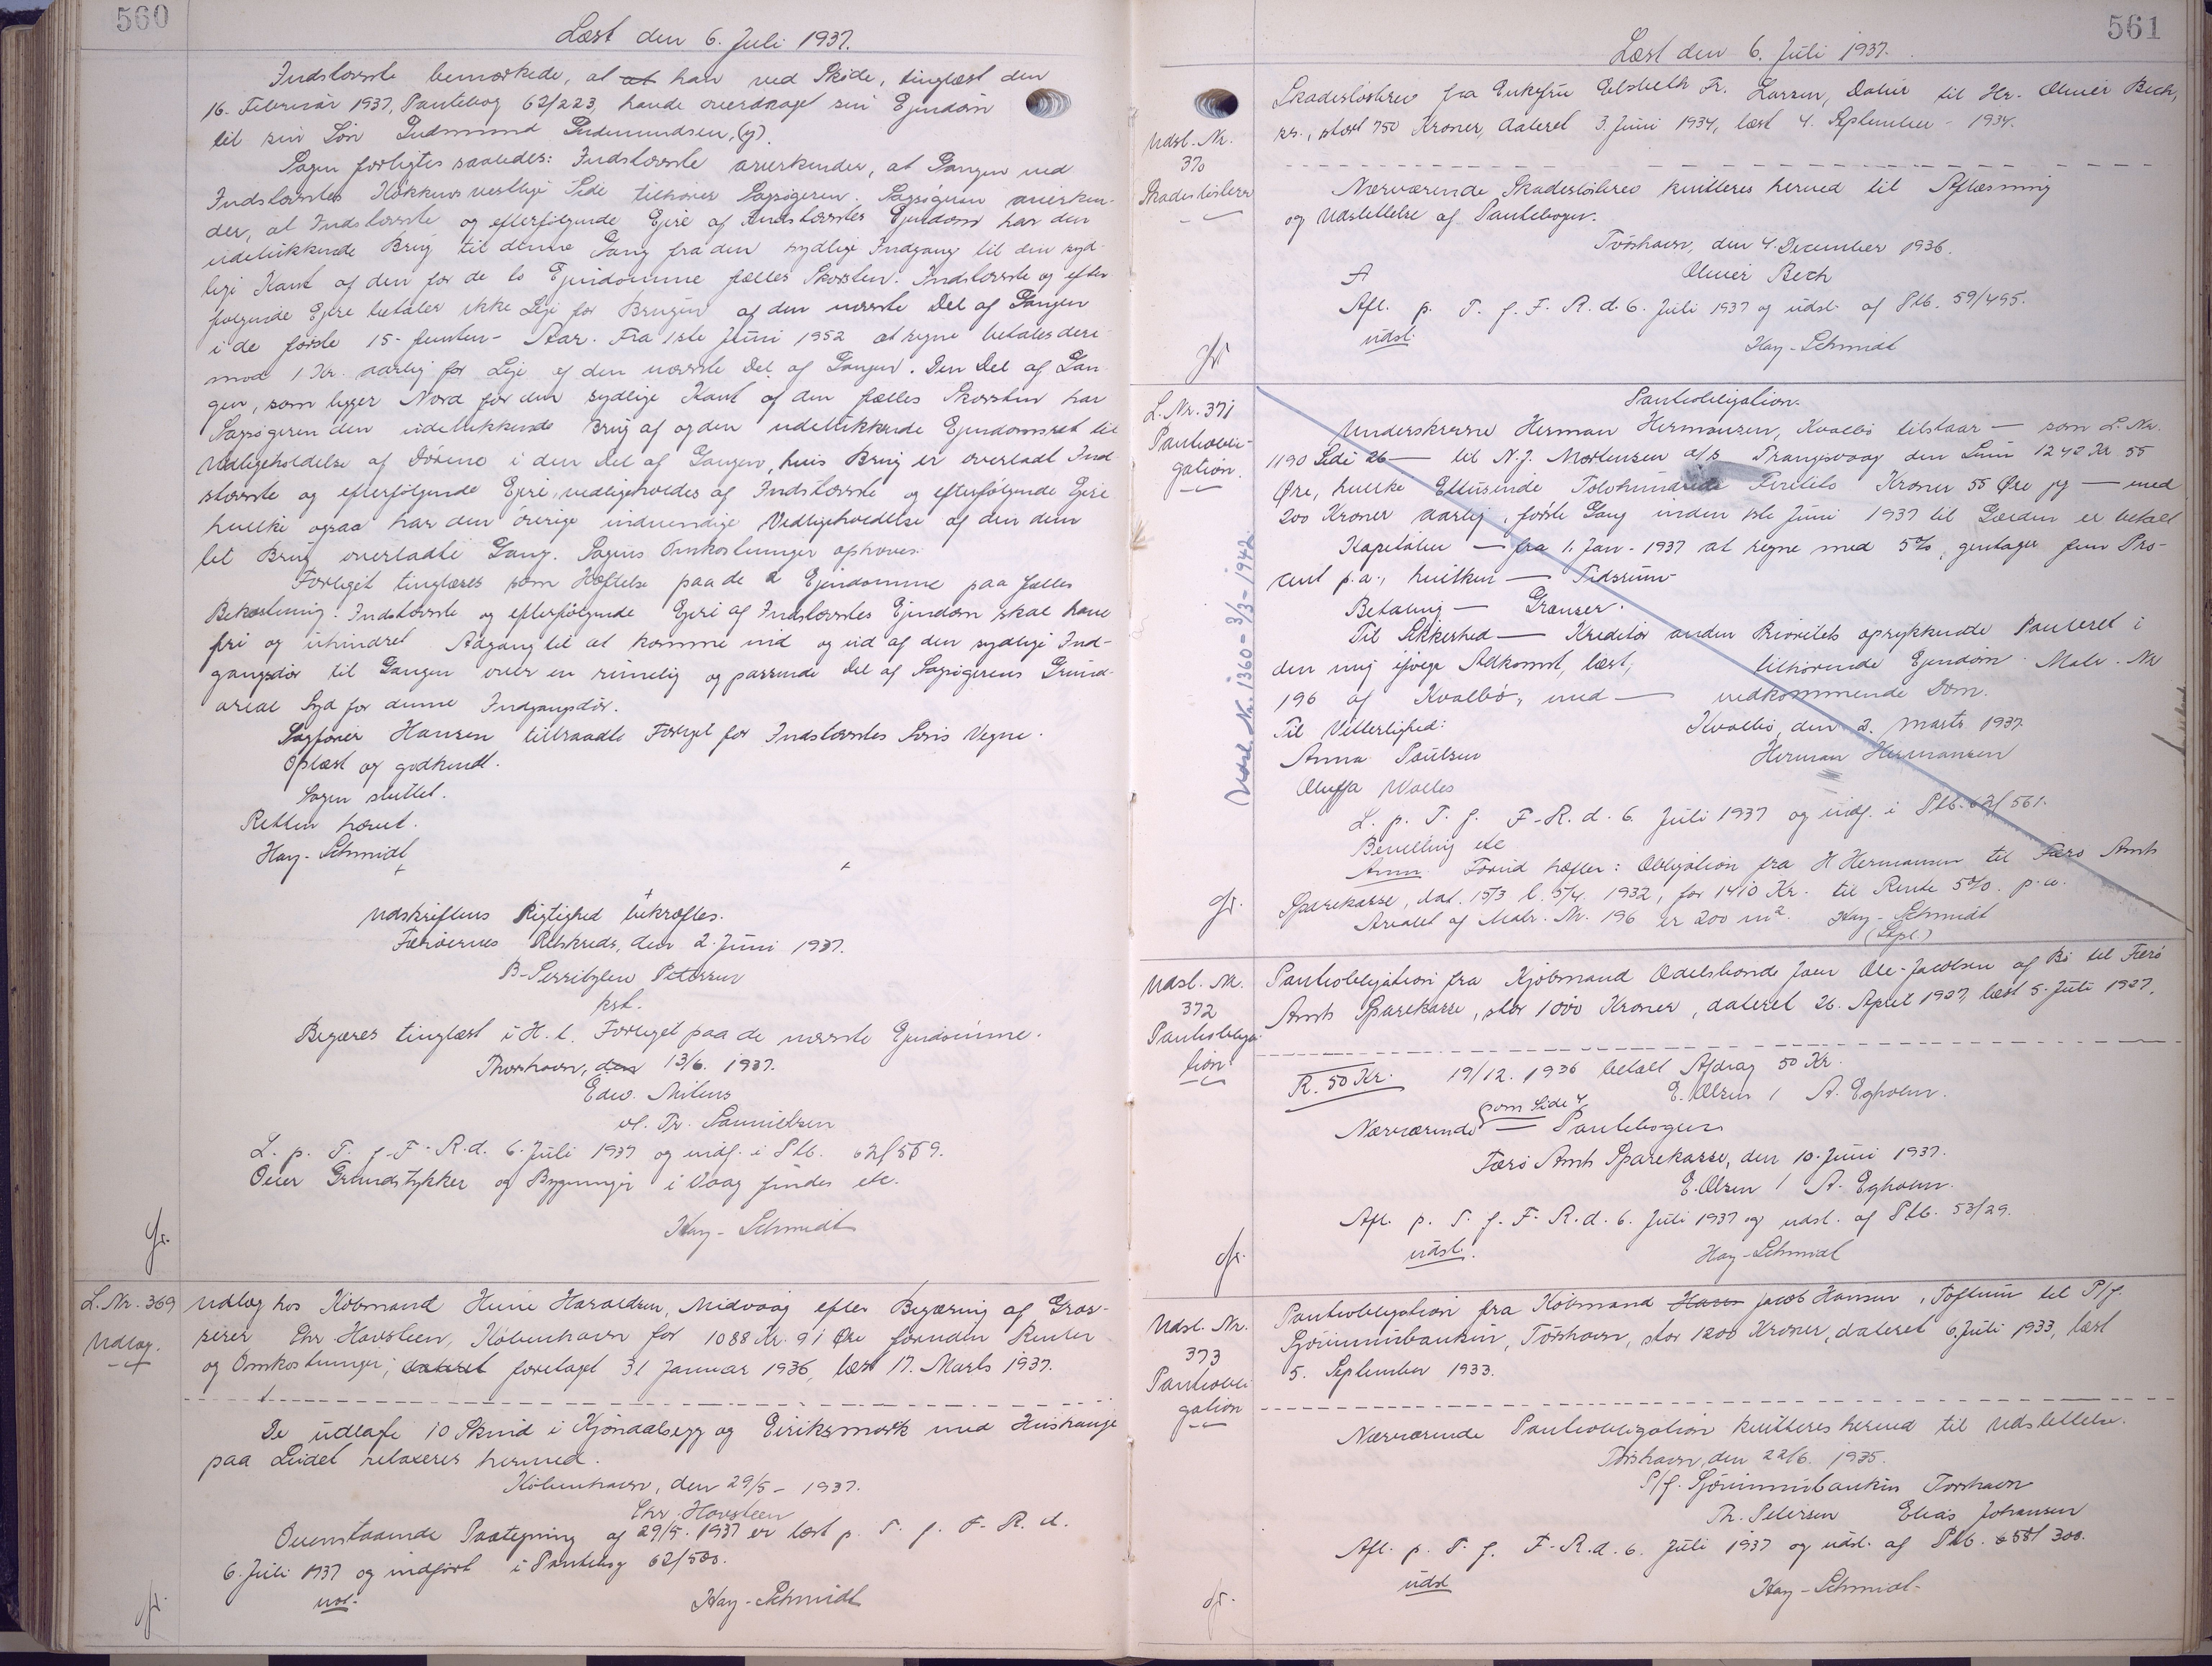 560
Læst den 6. Juli 1937.
Indstævnte bemærkede, at at han ved Skøde, tinglæst den
16. Februar 1937, Pantebog 62/223, havde overdraget sin Ejendom
til sin Søn Gudmund Gudmundsen, (g).
Sagen forligtes saaledes: Indstævnte anerkender, at Gangen ved
Indstævntes Køkkens vestlige Side tilhører Sagsøgeren. Sagsøgeren anerken-
der, at Indstævnte og efterfølgende Ejere af Indstævntes Ejendom har den
udelukkende Brug til denne Gang fra den sydlige Indgang til den syd-
lige Kant af den for de to Ejendomme fælles Skorsten. Indstævnte og efter-
følgende Ejere betaler ikke Leje for Brugen af den nævnte Del af Gangen
i de første 15 - femten - Aar. Fra 1ste Juni 1952 at regne betales der-
mod 1 Kr. aarlig for Leje af den nævnte Del af Gangen. Den Del af Gan-
gen, som ligger Nord for den sydlige Kant af den fælles Skorsten har
Sagsøgeren den udelukkende Brug af og den udelukkende Ejendomsret til
Vedligeholdelse af Dørene i den Del af Gangen, hvis Brug er overladt Ind-
stævnte og efterfølgende Ejere, vedligeholdes af Indstævnte og efterfølgende Ejere
hvilke ogsaa har den øvrige indvendige Vedligeholdelse af den dem
til Brug overladte Gang. Sagens Omkostninger ophæves.
Forliget tinglæses som Hæftelse paa de 2 Ejendomme paa fælles
Bekostning. Indstævnte og efterfølgende Ejere af Indstævntes Ejendom skal have
fri og uhindret Adgang til at komme ind og ud af den sydlige Ind-
gangsdør til Gangen over en rimelig og passende Del af Sagsøgerens Grund-
areal Syd for denne Indgangsdør.
Sagfører Hansen tiltraadte Forliget for Indstævntes Søns Vegne.
Oplæst og godkendt.
Sagen sluttet.
Retten hævet.
Hay-Schmidt
Udskriftens Rigtighed bekræftes.
Færøernes Retskreds, den 2. Juni 1937.
Petersen
kst.
Begæres tinglæst i H. t. Forliget paa de nævnte Ejendomme.
Thorshavn, den 13/6. 1937.
Edw. Mitens
L. p. T. f. F. R. d. 6. Juli 1937 og indf. i Ptb. 62/559.
Over Grundstykker og Bygninger i Vaag findes etc.
Hay-Schmidt
gr.
L. Nr. 369
Udlæg.
Udlæg hos Købmand Hune Haraldsen, Midvaag efter Begæring af Gros-
serer Chr Havsteen, København for 1088 Kr. 91 Øre foruden Renter
og Omkostninger; dateret foretaget 31 Januar 1936, læst 17. Marts 1937.
De udlagte 10 Skind i Kjøndalsegg og Eiriksmørk med Hushauge
paa Leidet relaxeres hermed.
København, den 29/5 - 1937.
Chr. Havsteen
Ovenstaaende Paategning af 29/5. 1937 er læst p. T. f. F. R. d.
6. Juli 1937 og indført i Pantebog 62/560.
Hay-Schmidt
gr.
561
Læst den 6. Juli 1937.
Udsl. Nr.
370
Skadesløsbrev
Skadesløsbrev fra Enkefru Elsbeth Fr. Larsen, Dalur til Hr. Oliver Bech,
stort 750 Kroner, dateret 3. Juni 1934, læst 4. September - 1934.
Nærværende Skadesløsbrev kvitteres herved til Aflæsning
og Udslettelse af Pantebogen.
Tórshavn, den 4. December 1936.
Oliver Bech
Afl. p. T. f. F. R. d. 6. Juli 1937 og udsl. af Ptb. 59/495.
udsl.
Hay-Schmidt
gr
L. Nr. 371
Pantobli-
gation.
Pantobligation.
Underskrevne Herman Hermansen, Kvalbø tilstaar — som L. Nr.
1190 Side 26 — til N. J. Mortensen a/s Trangisvaag den Sum 1242 Kr. 55
Øre, hvilke Ettusinde Tolvhundrede Firetito Kroner 55 Øre jeg — med
200 Kroner aarlig, første Gang inden 1ste Juni 1937 til Gælden er betalt
Kapitalen — fra 1. Jan - 1937 at regne med 5%, gentager fem Pro-
cent p.a., hvilken — Tidsrum
Betaling — Grænser.
Til Sikkerhed — Kreditor anden Prioritets oprykkende Panteret i
den mig ifølge Adkomst, læst, tilhørende Ejendom Matr. Nr
196 af Kvalbø, med — vedkommende Dom.
Til Vitterlighed:
Kvalbø, den 2. Marts 1937
Anna Poulsen
Herman Hermansen
Oluffa Wolles
L. p. T. f. F. R. d. 6. Juli 1937 og indf. i Ptb. 62/561.
Bevilling etc
Anm. Forud hæfter: Obligation fra H Hermansen til Færø Amts
Sparekasse, dat. 15/3 l. 5/4. 1932, for 1410 Kr. til Rente 5%. p.a.
Arealet af Matr. Nr. 196 er 200 m². Hay-Schmidt
gr.
Udsl. Nr. 1360 - 3/3 - 1942
Udsl. Nr.
372
Pantobliga
tion
Pantobligation fra Kjøbmand Odelsbonde Joen Ole-Jacobsen af Bø til Færø
Amts Sparekasse, stor 1000 Kroner, dateret 26. April 1927, læst 5. Juli 1927.
R. 50 Kr. 19/12. 1936 betalt Afdrag 50 Kr.
E. Olsen / A. Egholm.
Nærværende som Side 4 — Pantebogen
Færø Amts Sparekasse, den 10. Juni 1937.
E. Olsen / A. Egholm.
Afl. p. T. f. F. R. d. 6. Juli 1937 og udsl. af Ptb. 53/29.
udsl.
Hay-Schmidt
gr.
Udsl. Nr.
373
Pantobli
gation
Pantobligation fra Købmand Hans Jacob Hansen, Toftum til P/f.
Sjóvinnubankin, Tórshavn, stor 1200 Kroner, dateret 6. Juli 1933, læst
5. September 1933.
Nærværende Pantobligation kvitteres herved til Udslettelse.
Tórshavn, den 22/6. 1935.
P/f. Sjóvinnubankin Torshavn
Th. Petersen Elias Johansen
Afl. p. T. f. F. R. d. 6. Juli 1937 og udsl. af Ptb. 58/300.
udsl
Hay-Schmidt
gr.